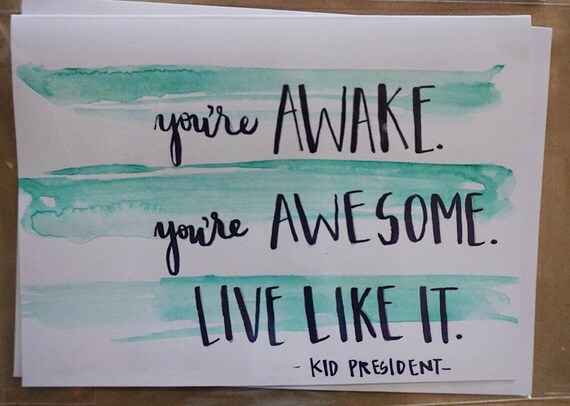 you're AWAKE.
you're AWESOME.
LIVE LIKE IT.
- KID PRESIDENT-